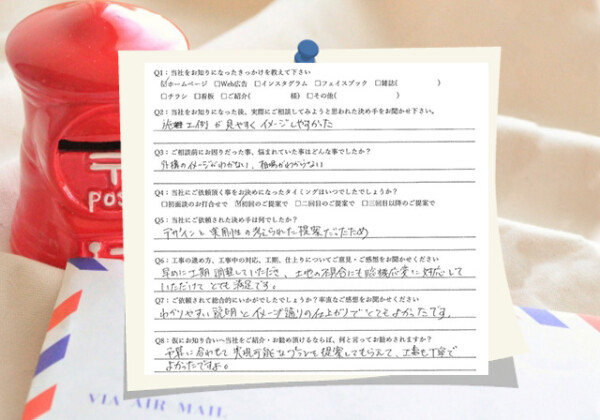 Q1：当社をお知りになったきっかけを教えて下さい
☑ホームページ　□Web広告　□インスタグラム　□フェイスブック　□雑誌(　　　　)
□チラシ　□看板　□ご紹介(　　　　様)　□その他(　　　　)
Q2：当社をお知りになった後、実際にご相談してみようと思われた決め手をお聞かせ下さい。
施工例が見やすくイメージしやすかった
Q3：ご相談前にお困りだった事、悩まれていた事はどんな事でしたか？
外構のイメージがわかない、相場がわからない
Q4：当社にご依頼頂く事をお決めになったタイミングはいつでしたでしょうか？
□初面談のお打合せで　☑初回のご提案で　□二回目のご提案で　□三回目以降のご提案で
Q5：当社にご依頼された決め手は何でしたか？
デザインと実用性の考えられた提案だったため
Q6：工事の進め方、工事中の対応、工期、仕上りについてご意見・ご感想をお聞かせください
早めに工期調整していただき、土地の不具合にも臨機応変に対応して
いただけてとても満足です。
Q7：ご依頼されて総合的にいかがでしたでしょうか？率直なご感想をお聞かせください
わかりやすい説明とイメージ通りの仕上がりでとてもよかったです。
Q8：仮にお知り合いへ当社をご紹介・お勧め頂けるならば、何と言ってお勧めされますか？
予算に合わせて実現可能なプランを提案してもらえて、工事も丁寧で
よかったですよ。
POS
VIA AIR MAIL